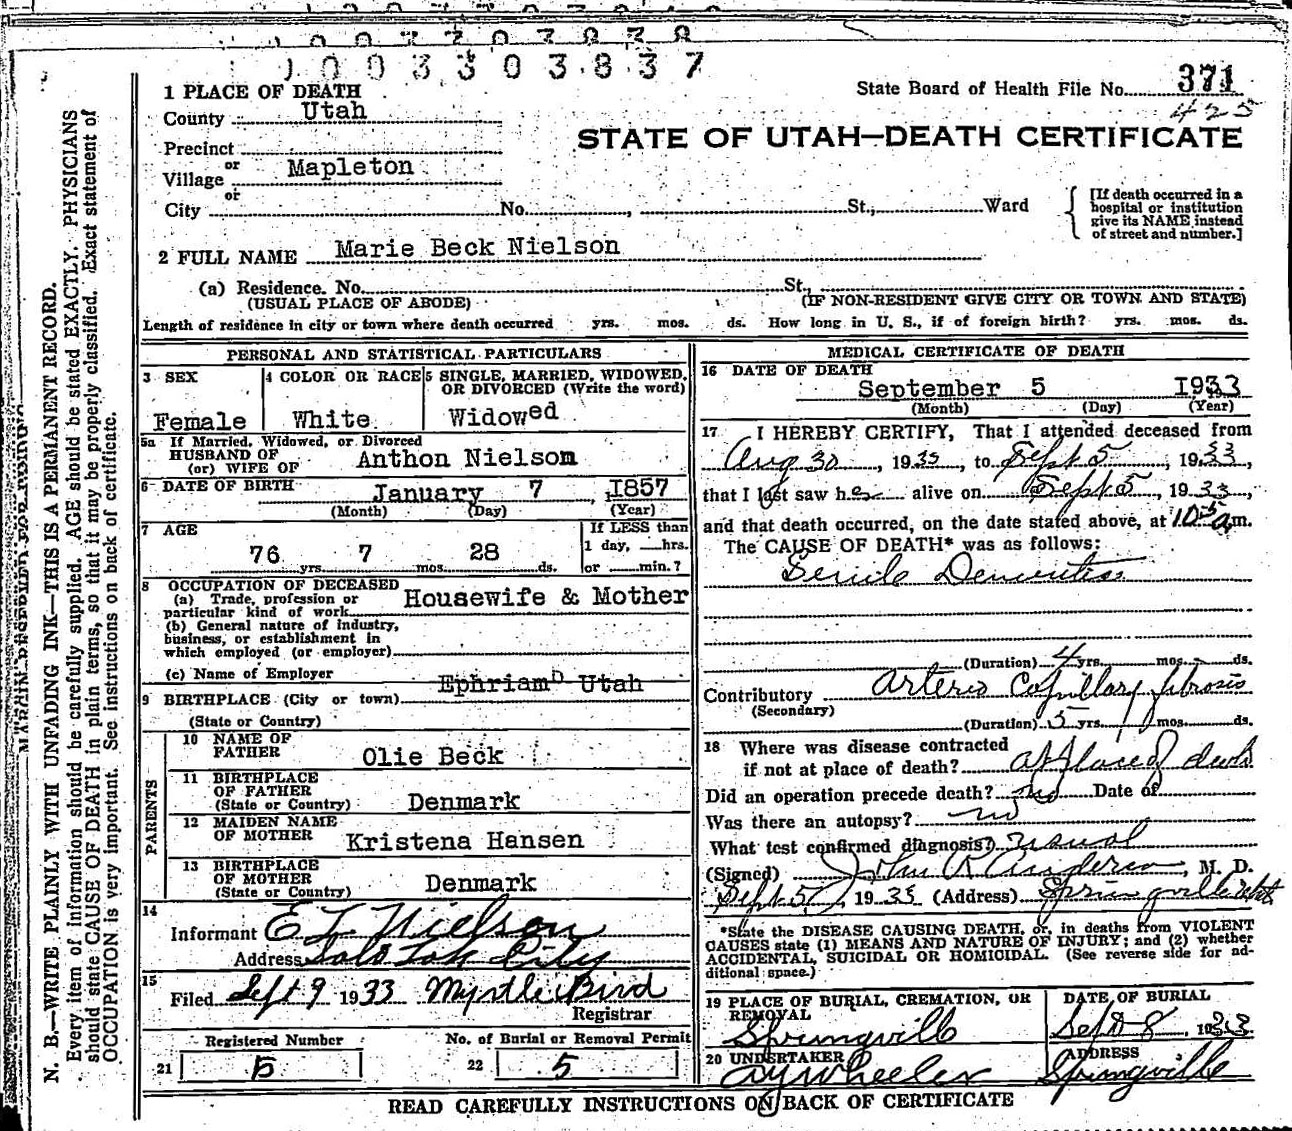 1003303837
State Board of Health File No. 371
425
STATE OF UTAH—DEATH CERTIFICATE
1 PLACE OF DEATH
County Utah
Precinct
or
Village Mapleton
or
City No. , St., Ward
[If death occurred in a
hospital or institution
give its NAME instead
of street and number.]
2 FULL NAME Marie Beck Nielson
(a) Residence. No. St.,
(USUAL PLACE OF ABODE) (IF NON-RESIDENT GIVE CITY OR TOWN AND STATE)
Length of residence in city or town where death occurred yrs. mos. ds. How long in U. S., if of foreign birth? yrs. mos. ds.
PERSONAL AND STATISTICAL PARTICULARS
3 SEX
Female
4 COLOR OR RACE
White
5 SINGLE, MARRIED, WIDOWED,
OR DIVORCED (Write the word)
Widowed
5a If Married, Widowed, or Divorced
HUSBAND OF
(or) WIFE OF Anthon Nielson
6 DATE OF BIRTH January 7 , 1857
(Month) (Day) (Year)
7 AGE
76 yrs. 7 mos. 28 ds.
If LESS than
1 day, hrs.
or min.?
8 OCCUPATION OF DECEASED
(a) Trade, profession or
particular kind of work Housewife & Mother
(b) General nature of industry,
business, or establishment in
which employed (or employer)
(c) Name of Employer
9 BIRTHPLACE (City or town) Ephriam Utah
(State or Country)
PARENTS
10 NAME OF
FATHER Olie Beck
11 BIRTHPLACE
OF FATHER
(State or Country) Denmark
12 MAIDEN NAME
OF MOTHER Kristena Hansen
13 BIRTHPLACE
OF MOTHER
(State or Country) Denmark
14
Informant E L Nielson
Address Salt Lak City
15
Filed Sept 9 1933 Myrtle Bird
Registrar
Registered Number
21 5
No. of Burial or Removal Permit
22 5
MEDICAL CERTIFICATE OF DEATH
16 DATE OF DEATH
September 5 1933
(Month) (Day) (Year)
17 I HEREBY CERTIFY, That I attended deceased from
Aug 30 , 1933 , to Sept 5 , 1933 ,
that I last saw her alive on Sept 5 , 1933 ,
and that death occurred, on the date stated above, at 10 am.
The CAUSE OF DEATH* was as follows:
Senile Dementia
(Duration) 4 yrs. mos. ds.
Contributory Arterio Capillary fibrosis
(Secondary)
(Duration) 5 yrs. mos. ds.
18 Where was disease contracted
if not at place of death? at place of death
Did an operation precede death? no Date of
Was there an autopsy? no
What test confirmed diagnosis? usual
(Signed) John R Anderson , M. D.
Sept 5 , 1933 (Address) Springville Utah
*State the DISEASE CAUSING DEATH, or, in deaths from VIOLENT
CAUSES state (1) MEANS AND NATURE OF INJURY; and (2) whether
ACCIDENTAL, SUICIDAL OR HOMICIDAL. (See reverse side for ad-
ditional space.)
19 PLACE OF BURIAL, CREMATION, OR
REMOVAL
Springville
DATE OF BURIAL
Sept 8 , 1933
20 UNDERTAKER
A Y Wheeler
ADDRESS
Springville
READ CAREFULLY INSTRUCTIONS ON BACK OF CERTIFICATE
MARGIN RESERVED FOR BINDING
N. B.—WRITE PLAINLY WITH UNFADING INK—THIS IS A PERMANENT RECORD.
Every item of information should be carefully supplied. AGE should be stated EXACTLY. PHYSICIANS
should state CAUSE OF DEATH in plain terms, so that it may be properly classified. Exact statement of
OCCUPATION is very important. See instructions on back of certificate.